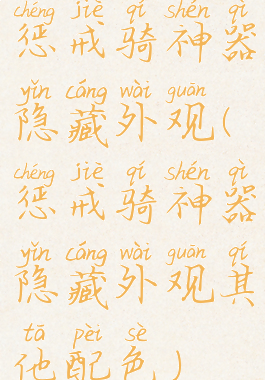 chéng jiè qí shén qì
惩戒骑神器
yǐn cáng wài guān
隐藏外观(
chéng jiè qí shén qì
惩戒骑神器
yǐn cáng wài guān qí
隐藏外观其
tā pèi sè
他配色)